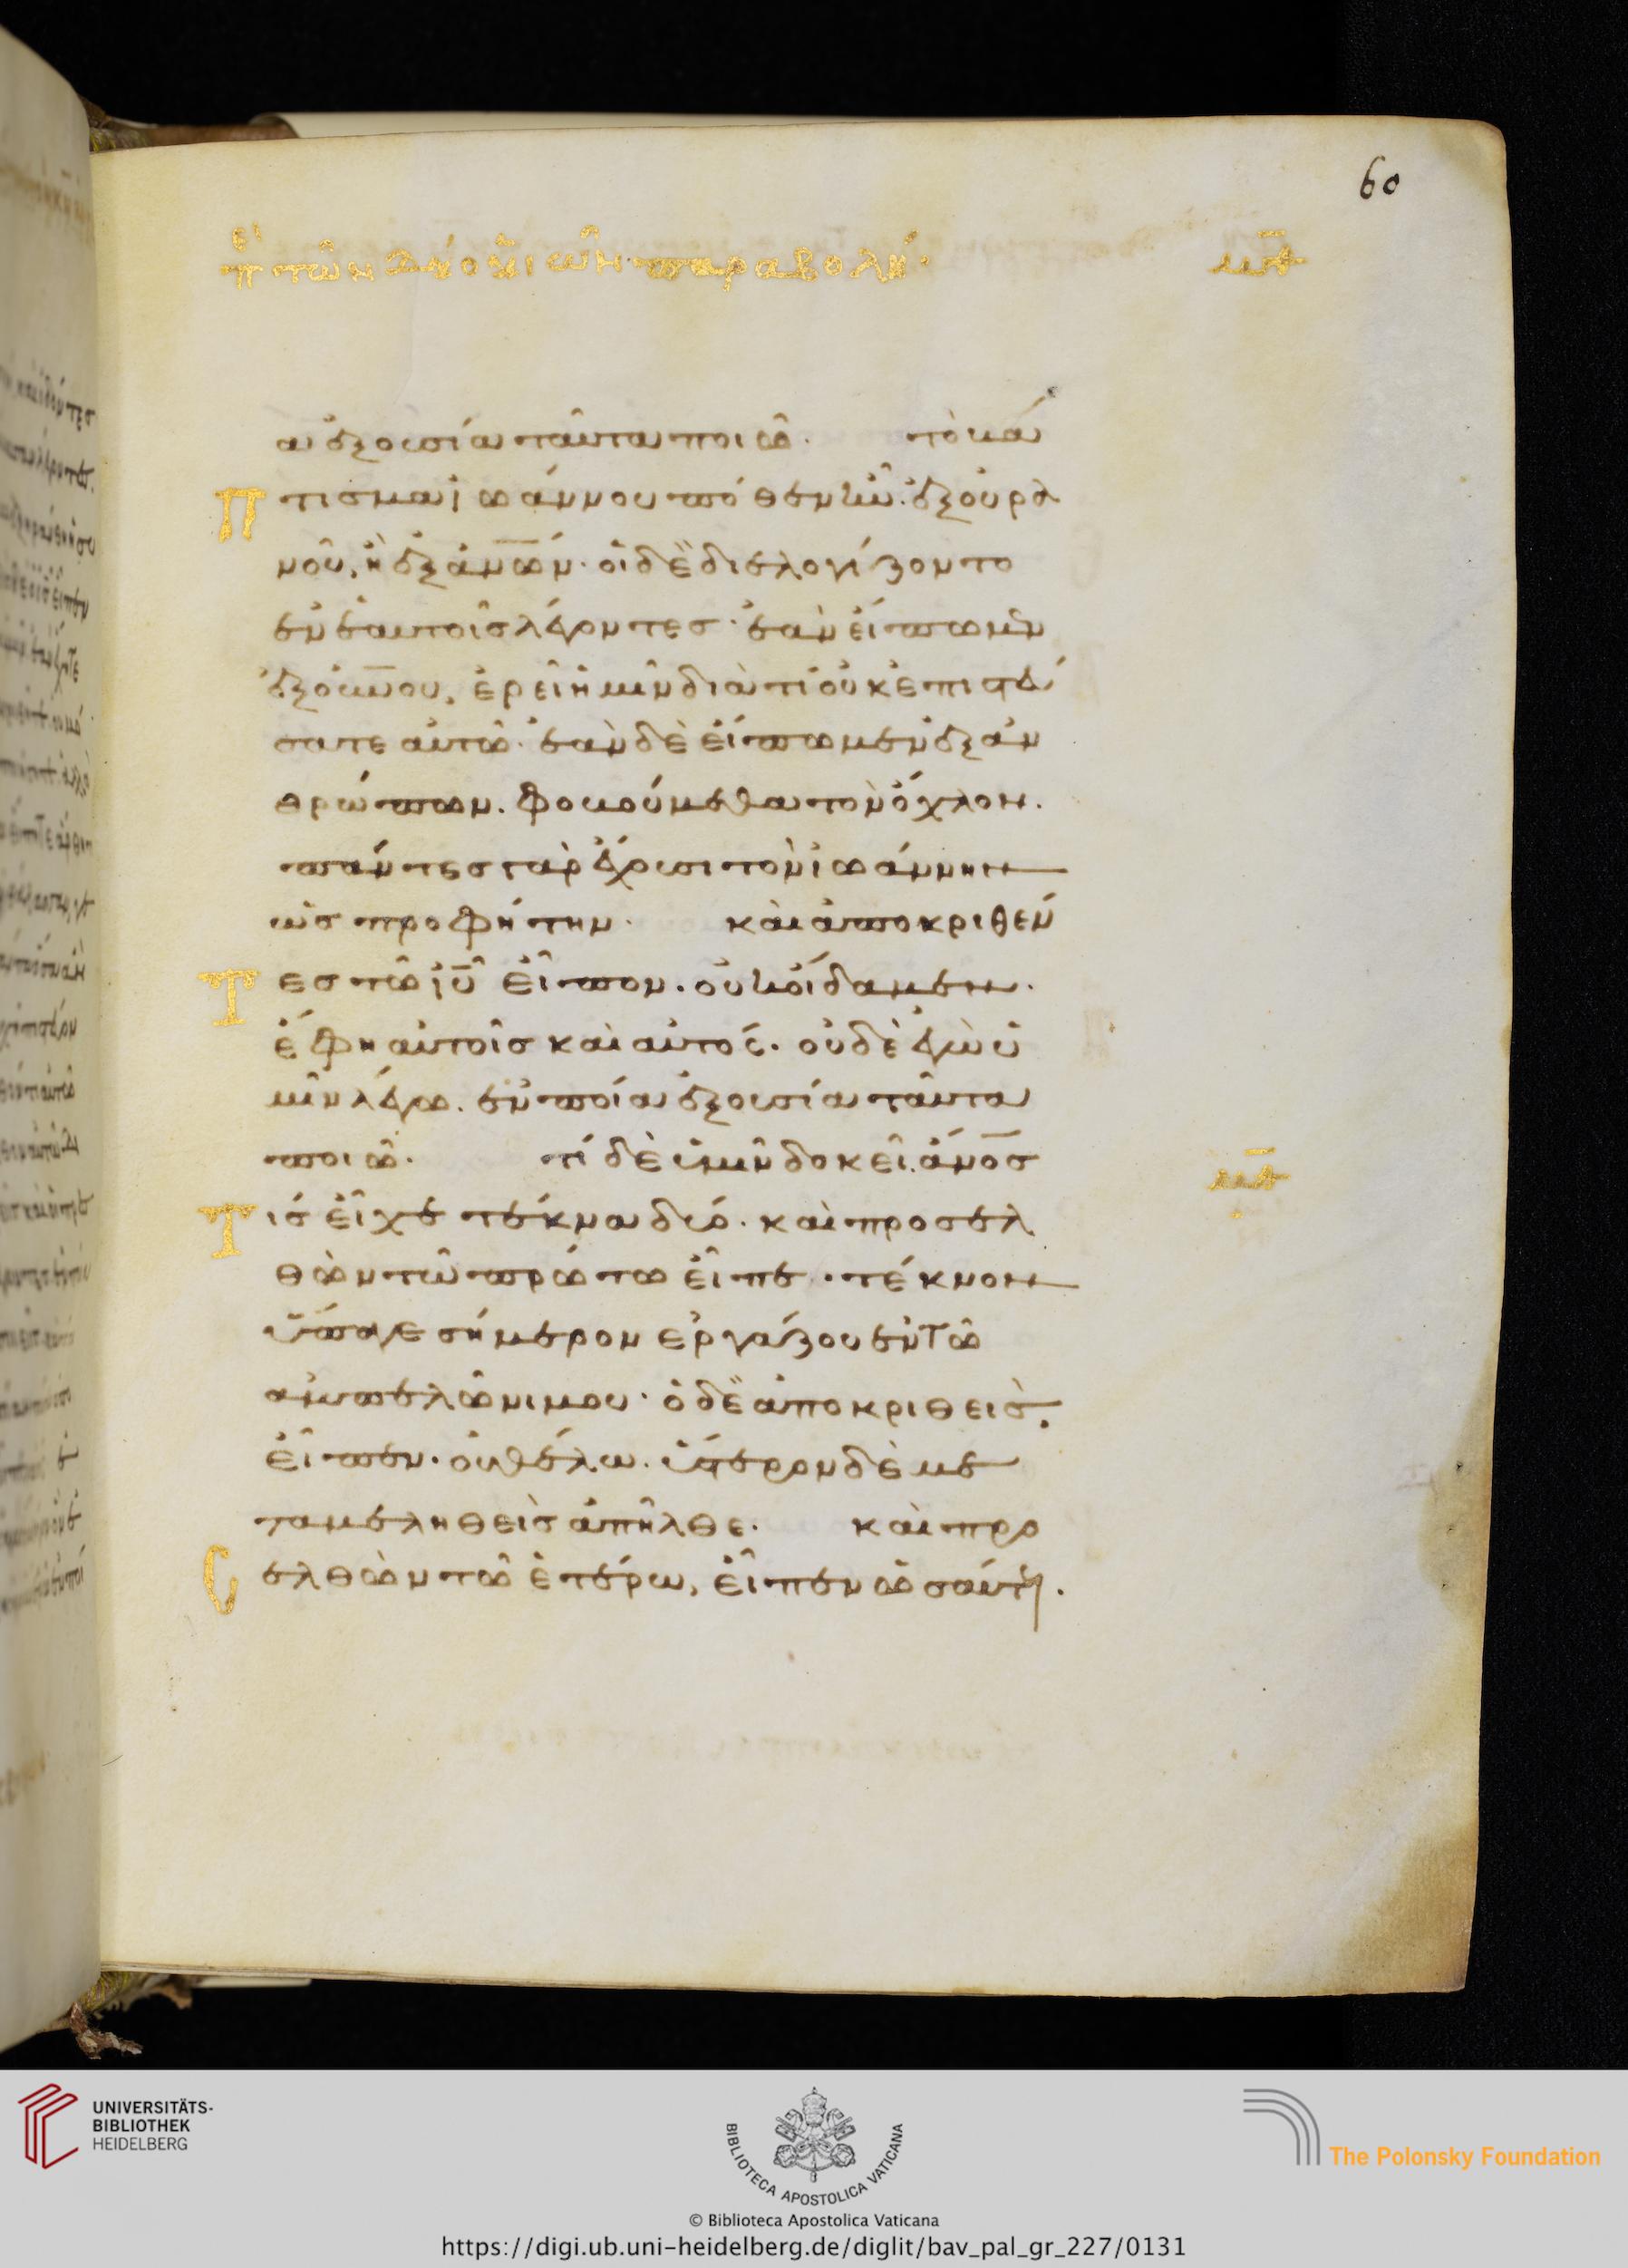 60
περὶ τῶν δύο υἱῶν παραβολή· μθ
α ἐξουσία ταῦτα ποιῶ· τὸ βά
πτισμα ἰωάννου πόθεν ἦν· ἐξ οὐρα
νοῦ, ἢ ἐξ ἀνων· οἱ δὲ διελογίζοντο
ἐν ἑαυτοῖς λέγοντες· ἐὰν εἴπωμεν
ἐξ οὐνου, ἐρεῖ ἡμῖν διὰ τί οὐκ ἐπιστεύ
σατε αὐτῶ· ἐὰν δὲ εἴπωμεν ἐξ ἀν
θρώπων. φοβούμεθα τὸν ὄχλον.
πάντες γὰρ ἔχουσι τὸν ἰωάννην
ὡς προφήτην· καὶ ἀποκριθέν
τες τῶ ιυ εἶπον. οὐκ οἴδαμεν.
ἔφη αὐτοῖς καὶ αὐτός. οὐδὲ ἐγὼ ὑ
μῖν λέγω. ἐν ποία ἐξουσία ταῦτα
ποιῶ. τί δὲ ὑμῖν δοκεῖ. ἄνος
τις εἶχε τέκνα δύο. καὶ προσελ
θὼν τῶ πρώτω εἶπε. τέκνον
ὕπαγε σήμερον ἐργάζου ἐν τῶ
ἀμπελῶνι μου. ὁ δὲ ἀποκριθεὶς.
εἶπεν. οὐ θέλω. ὕστερον δὲ με
ταμεληθεὶς ἀπῆλθε. καὶ προ
σελθὼν τῶ ἑτέρω, εἶπεν ὡσαύτως.
μθ
UNIVERSITÄTS-
BIBLIOTHEK
HEIDELBERG
BIBLIOTECA APOSTOLICA VATICANA
The Polonsky Foundation
© Biblioteca Apostolica Vaticana
https://digi.ub.uni-heidelberg.de/diglit/bav_pal_gr_227/0131